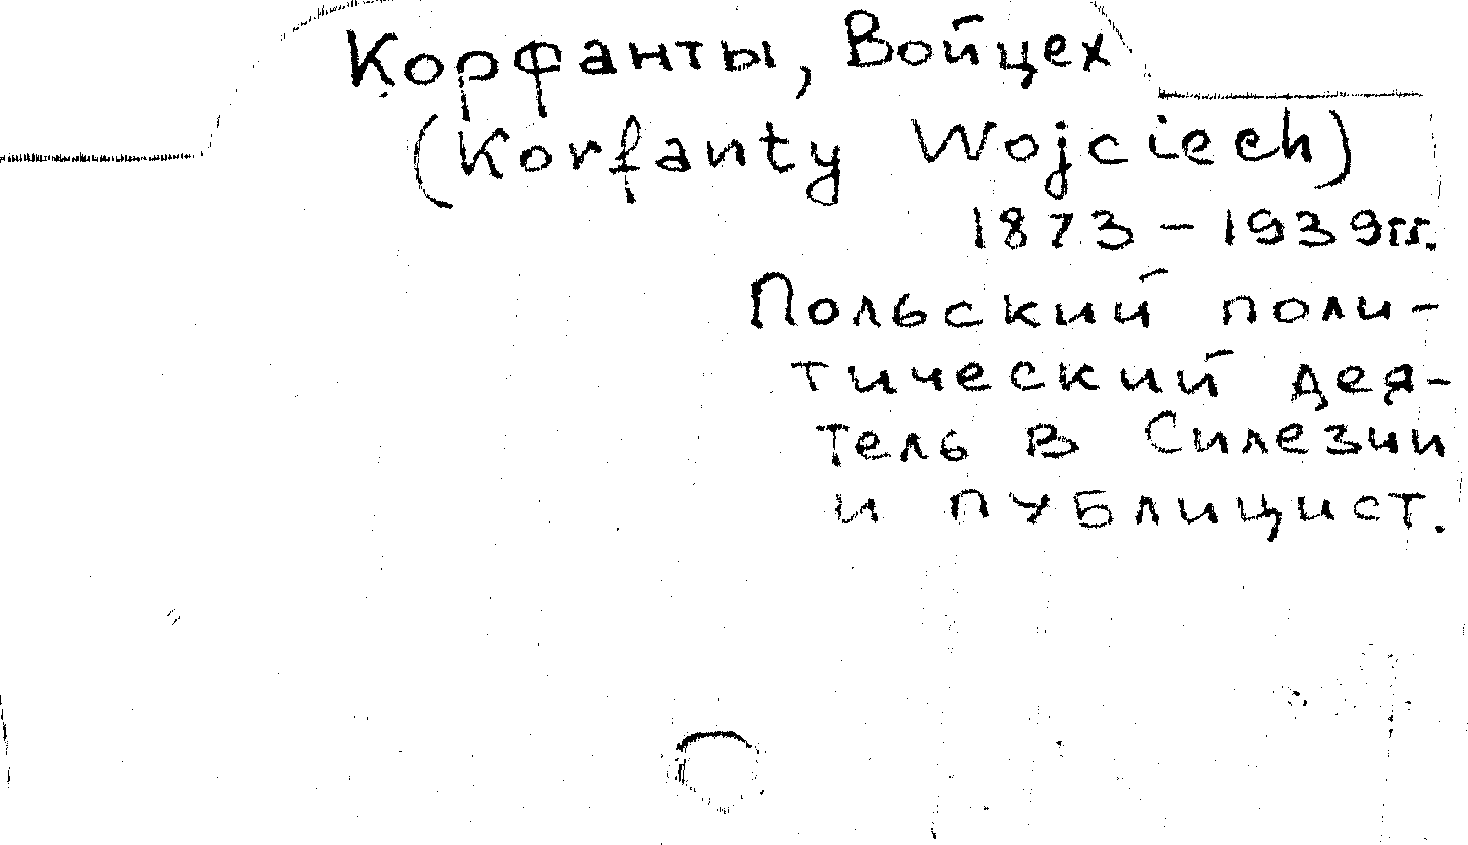 Корфанты, Войцех
(Korfanty Wojciech)
1873 – 1939гг.
Польский поли-
тический дея-
тель в Силезии
и публицист.